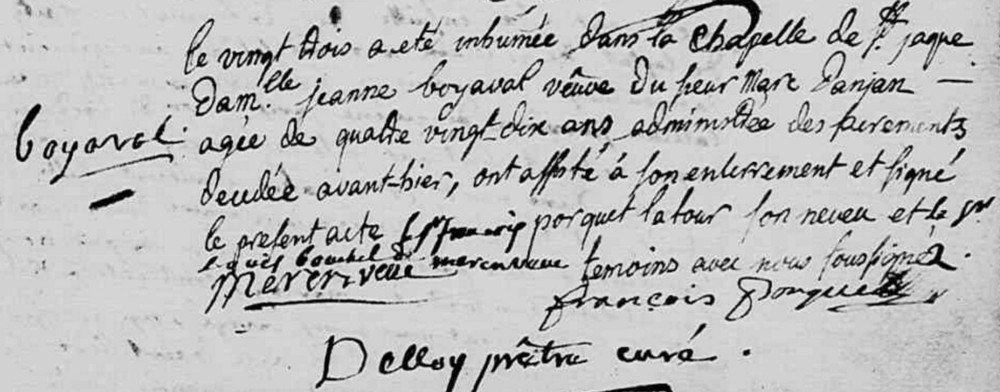 le vingt trois a eté inhumée dans la Chapelle de St. jaque
Dam.lle jeanne boyaval vêuve du sieur Marc Danjan —
boyaval
agée de quatre vingt dix ans administrée des sacrements
decedée avant-hier, ont assisté à son enterrement et signé
le present acte le Sr françois porquet latour son neveu et le Sr
bouchel de merenveüe temoins avec nous soussignez.
Merenveüe
françois Porquet
Delloy prêtre curé.